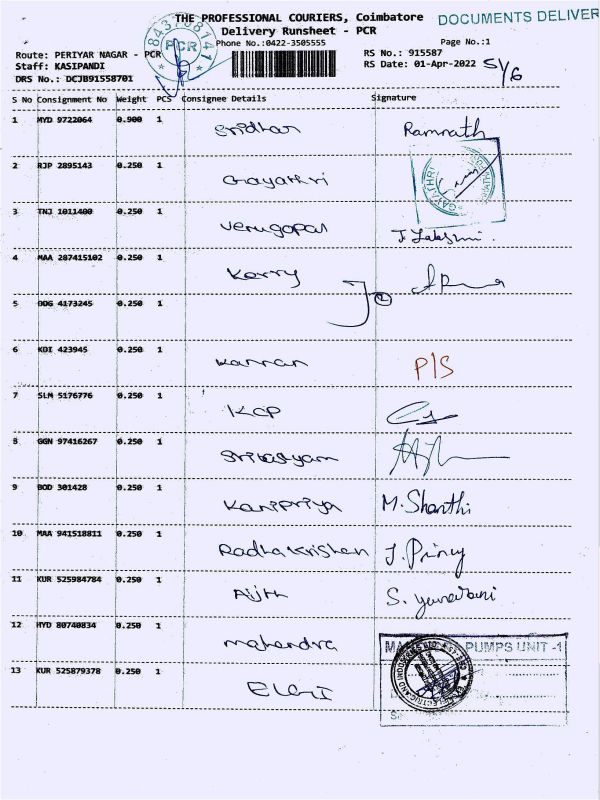 THE PROFESSIONAL COURIERS, Coimbatore
DOCUMENTS DELIVER
Delivery Runsheet - PCR
Phone No.:0422-3505555
Page No.:1
PCR
Route: PERIYAR NAGAR - PCR
RS No.: 915587
Staff: KASIPANDI
RS Date: 01-Apr-2022
DRS No.: DCJB91558701
S No Consignment No Weight PCS Consignee Details Signature
1 MYD 9722064 0.900 1 Sridhar Ramnath
2 RJP 2895143 0.250 1 Gayathri
3 TNJ 1011400 0.250 1 Venugopal J. Lakshmi.
4 MAA 287415102 0.250 1 Kerry
5 DDG 4173245 0.250 1
6 KDI 423945 0.250 1 Kannan P/S
7 SLM 5176776 0.250 1 KCP
8 GGN 97416267 0.250 1
9 BOD 301428 0.250 1 Kanipriya M. Shanthi
10 MAA 941518811 0.250 1 Radha Krishan J. Princy
11 KUR 525984784 0.250 1 Ajith
12 HYD 80740834 0.250 1 Mahendra
PUMPS UNIT -1
13 KUR 525879378 0.250 1 ELGI